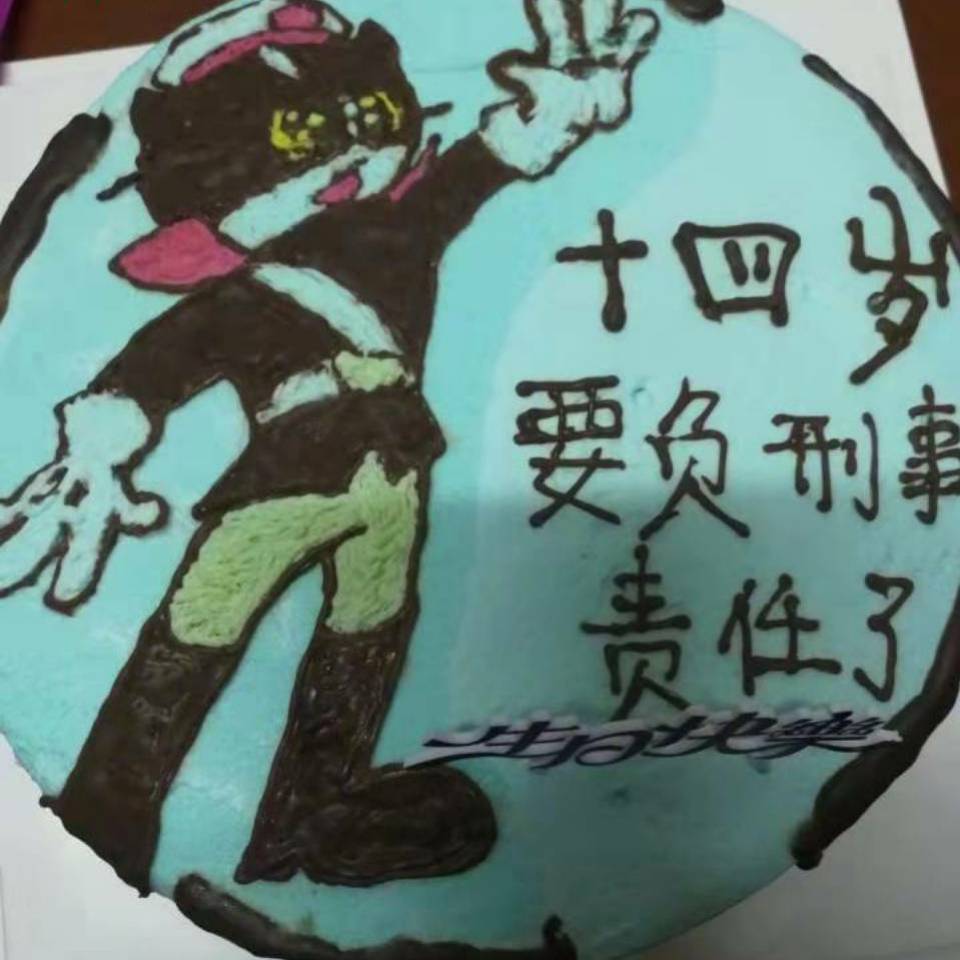 十四岁
要负刑事
责任了
生日快樂